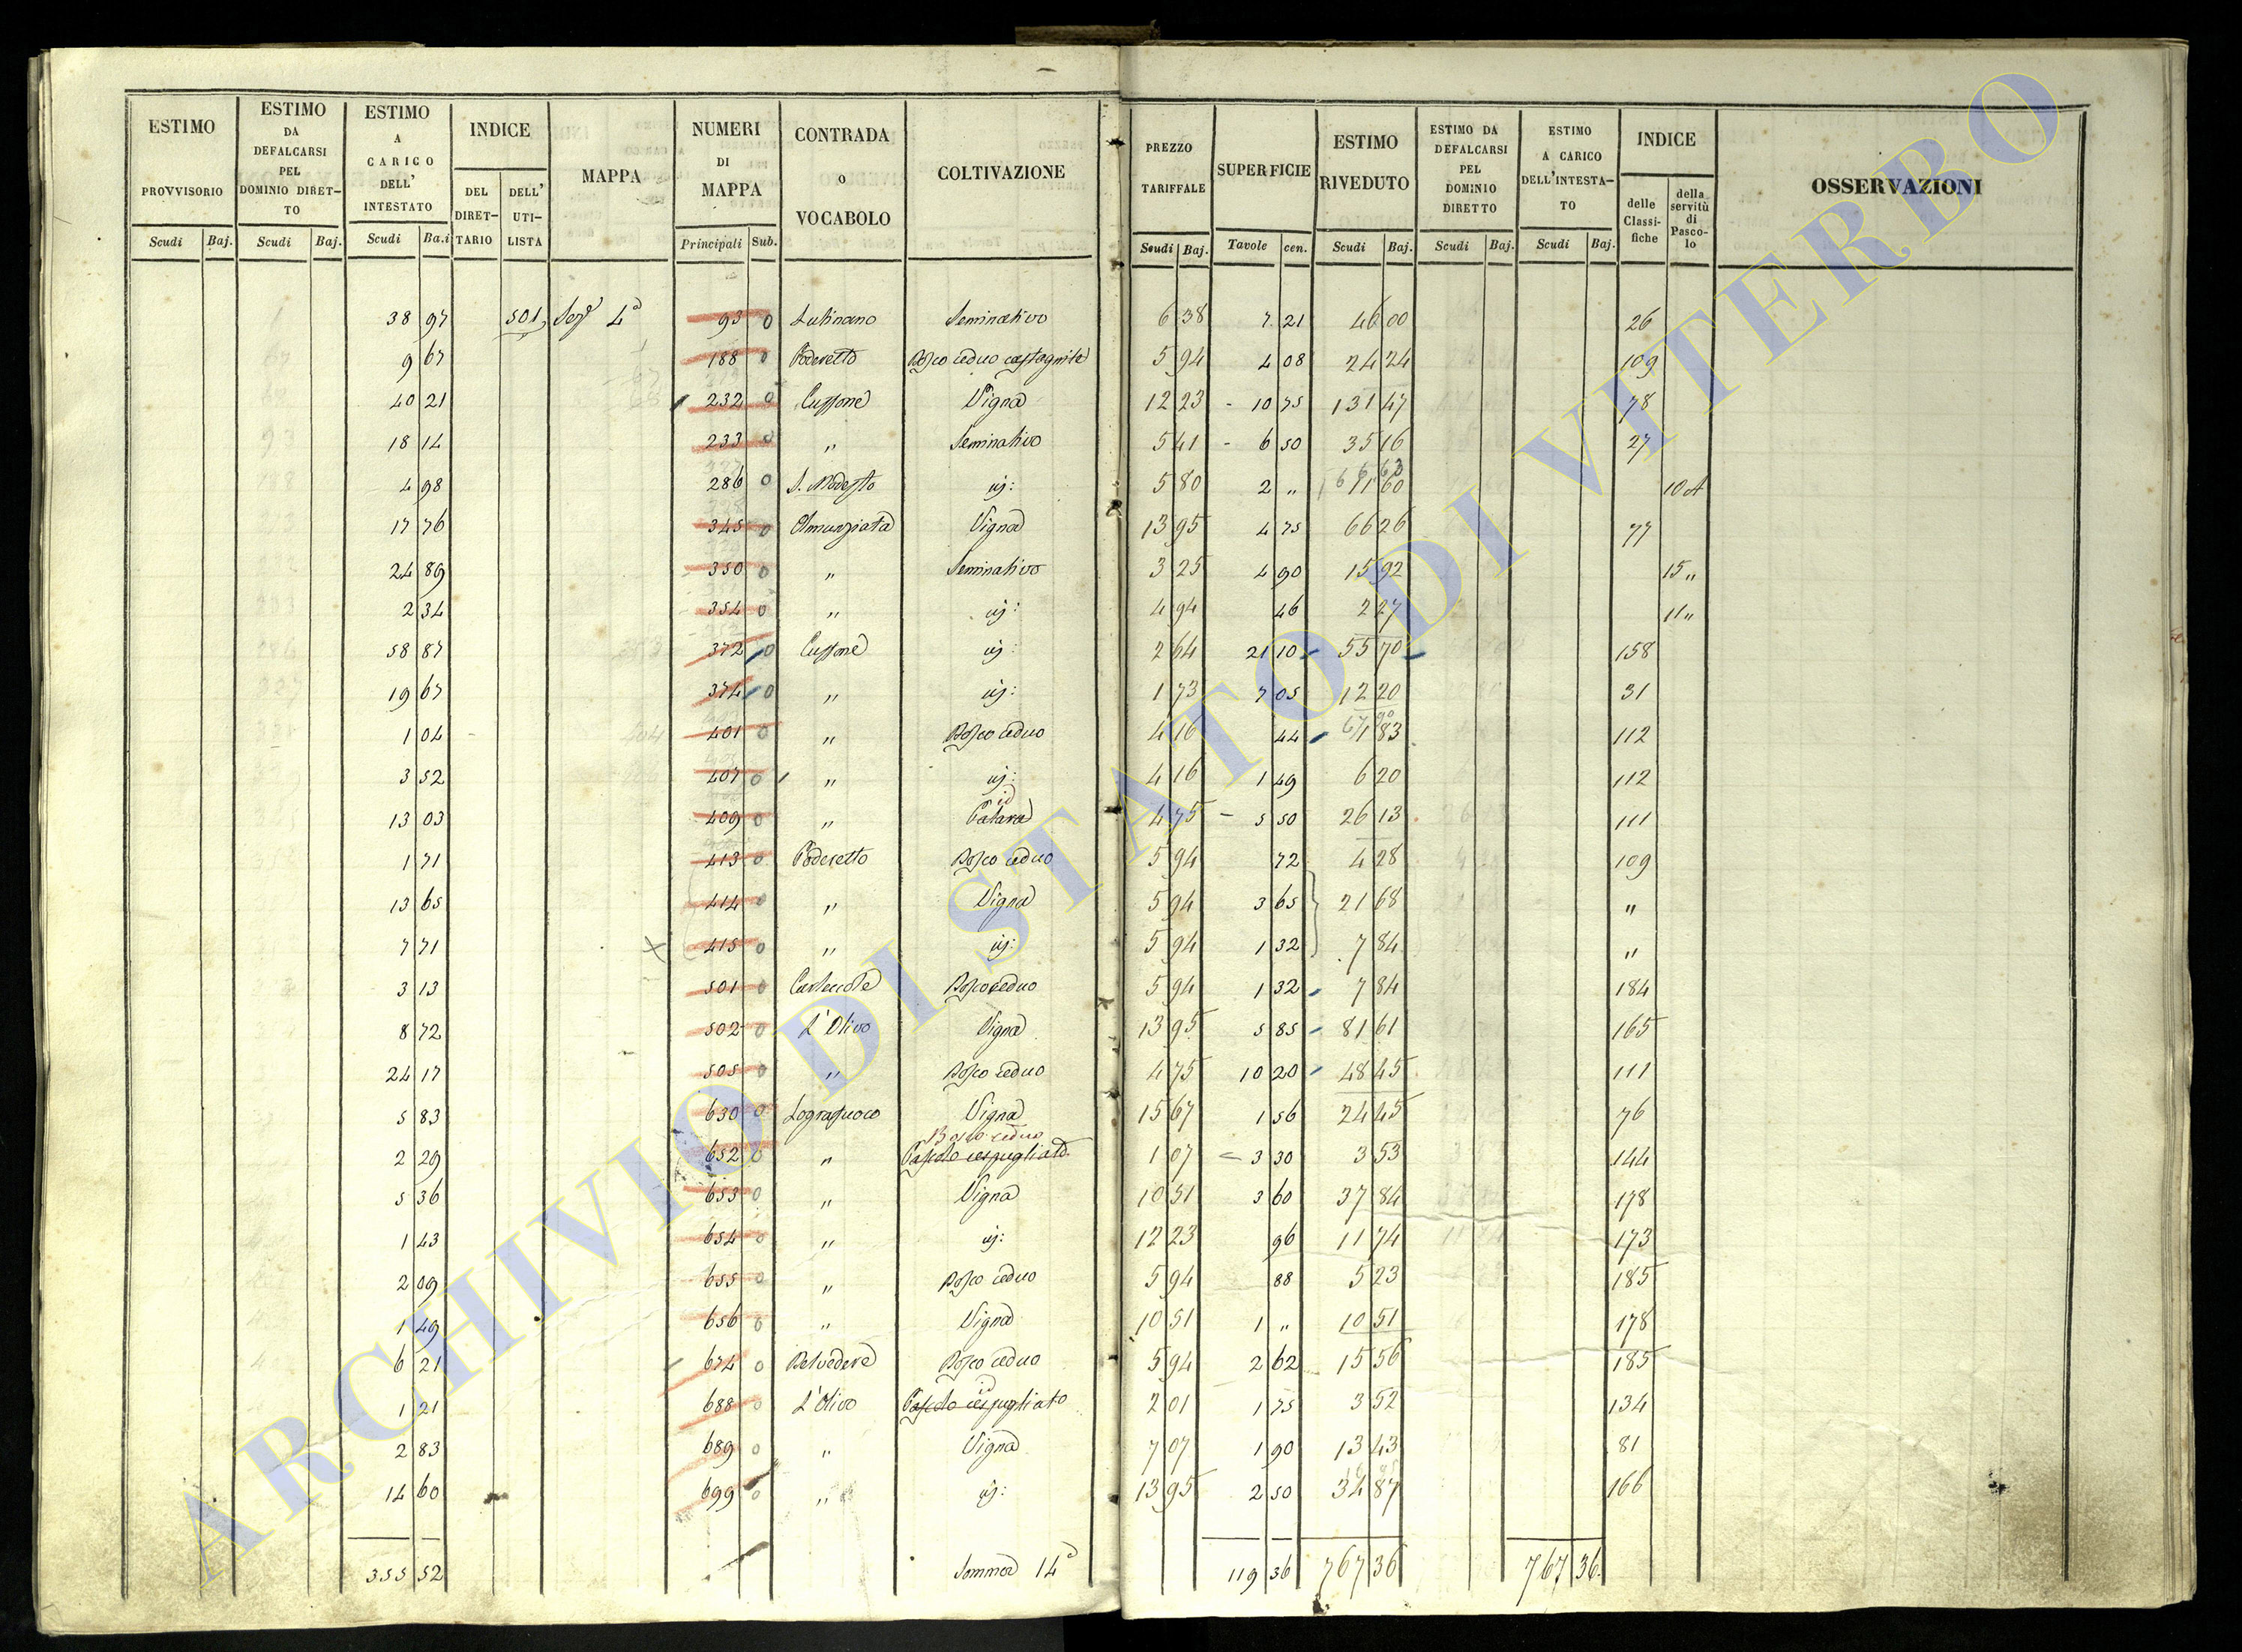 ESTIMO PROVVISORIO | ESTIMO DA DEFALCARSI PEL DOMINIO DIRETTO | ESTIMO A CARICO DELL' INTESTATO | INDICE DEL DIRETTARIO | DELL' UTILISTA | MAPPA | NUMERI DI MAPPA | CONTRADA O VOCABOLO | COLTIVAZIONE | PREZZO TARIFFALE | SUPERFICIE | ESTIMO RIVEDUTO | ESTIMO DA DEFALCARSI PEL DOMINIO DIRETTO | ESTIMO A CARICO DELL'INTESTATO | INDICE delle Classifiche | della servitù di Pascolo | OSSERVAZIONI
Scudi | Baj. | Scudi | Baj. | Scudi | Ba.i | Principali | Sub. | Scudi | Baj. | Tavole | cen. | Scudi | Baj. | Scudi | Baj. | Scudi | Baj.
38 97 | 501 | 4ª | 93 0 | Seminativo | 6 38 | 7 21 | 46 00 | 26
9 67 | 188 0 | Poderetto | Bosco ceduo | 5 94 | 4 08 | 24 24 | 109
40 21 | 232 0 | Cussone | Vigna | 12 23 | 10 75 | 131 47 | 78
18 14 | 233 0 | " | Seminativo | 5 41 | 6 50 | 35 16 | 27
4 98 | 286 0 | S. Modesto | id: | 5 80 | 2 " | 11 60 | 10 A
17 76 | 345 0 | Annunziata | Vigna | 13 95 | 4 75 | 66 26 | 77
24 89 | 350 0 | " | Seminativo | 3 25 | 4 90 | 15 92 | 15 "
2 34 | 354 0 | " | id: | 4 94 | 46 | 2 27 | 11 "
58 87 | 372 0 | Cussone | id: | 2 64 | 21 10 | 55 70 | 158
19 67 | 374 0 | " | id: | 1 73 | 7 05 | 12 20 | 31
1 04 | 401 0 | " | Bosco ceduo | 4 16 | 44 | 1 83 | 112
3 52 | 407 0 | " | id: | 4 16 | 1 49 | 6 20 | 112
id
13 03 | 409 0 | " | 4 75 | 5 50 | 26 13 | 111
1 71 | 413 0 | Poderetto | Bosco ceduo | 5 94 | 72 | 4 28 | 109
13 65 | 414 0 | " | Vigna | 5 94 | 3 65 | 21 68 | "
7 71 | 415 0 | " | id: | 5 94 | 1 32 | 7 84 | "
3 13 | 501 0 | Bosco ceduo | 5 94 | 1 32 | 7 84 | 184
8 72 | 502 0 | L'Olivo | Vigna | 13 95 | 5 85 | 81 61 | 165
24 17 | 505 0 | " | Bosco ceduo | 4 75 | 10 20 | 48 45 | 111
5 83 | 630 0 | Lografuoco | Vigna | 15 67 | 1 56 | 24 45 | 76
Bosco ceduo
2 29 | 652 0 | " | Pascolo cespugliato | 1 07 | 3 30 | 3 53 | 144
5 36 | 653 0 | " | Vigna | 10 51 | 3 60 | 37 84 | 178
1 43 | 654 0 | " | id: | 12 23 | 96 | 11 74 | 173
2 09 | 655 0 | " | Bosco ceduo | 5 94 | 88 | 5 23 | 185
1 49 | 656 0 | " | Vigna | 10 51 | 1 " | 10 51 | 178
6 21 | 674 0 | Belvedere | Bosco ceduo | 5 94 | 2 62 | 15 56 | 185
id
1 21 | 688 0 | L'Olivo | Pascolo cespugliato | 2 01 | 1 75 | 3 52 | 134
2 83 | 689 0 | " | Vigna | 7 07 | 1 90 | 13 43 | 81
14 60 | 699 0 | " | id: | 13 95 | 2 50 | 34 87 | 166
355 52 | Somma 14ª | 119 36 | 767 36 | 767 36
ARCHIVIO DI STATO DI VITERBO